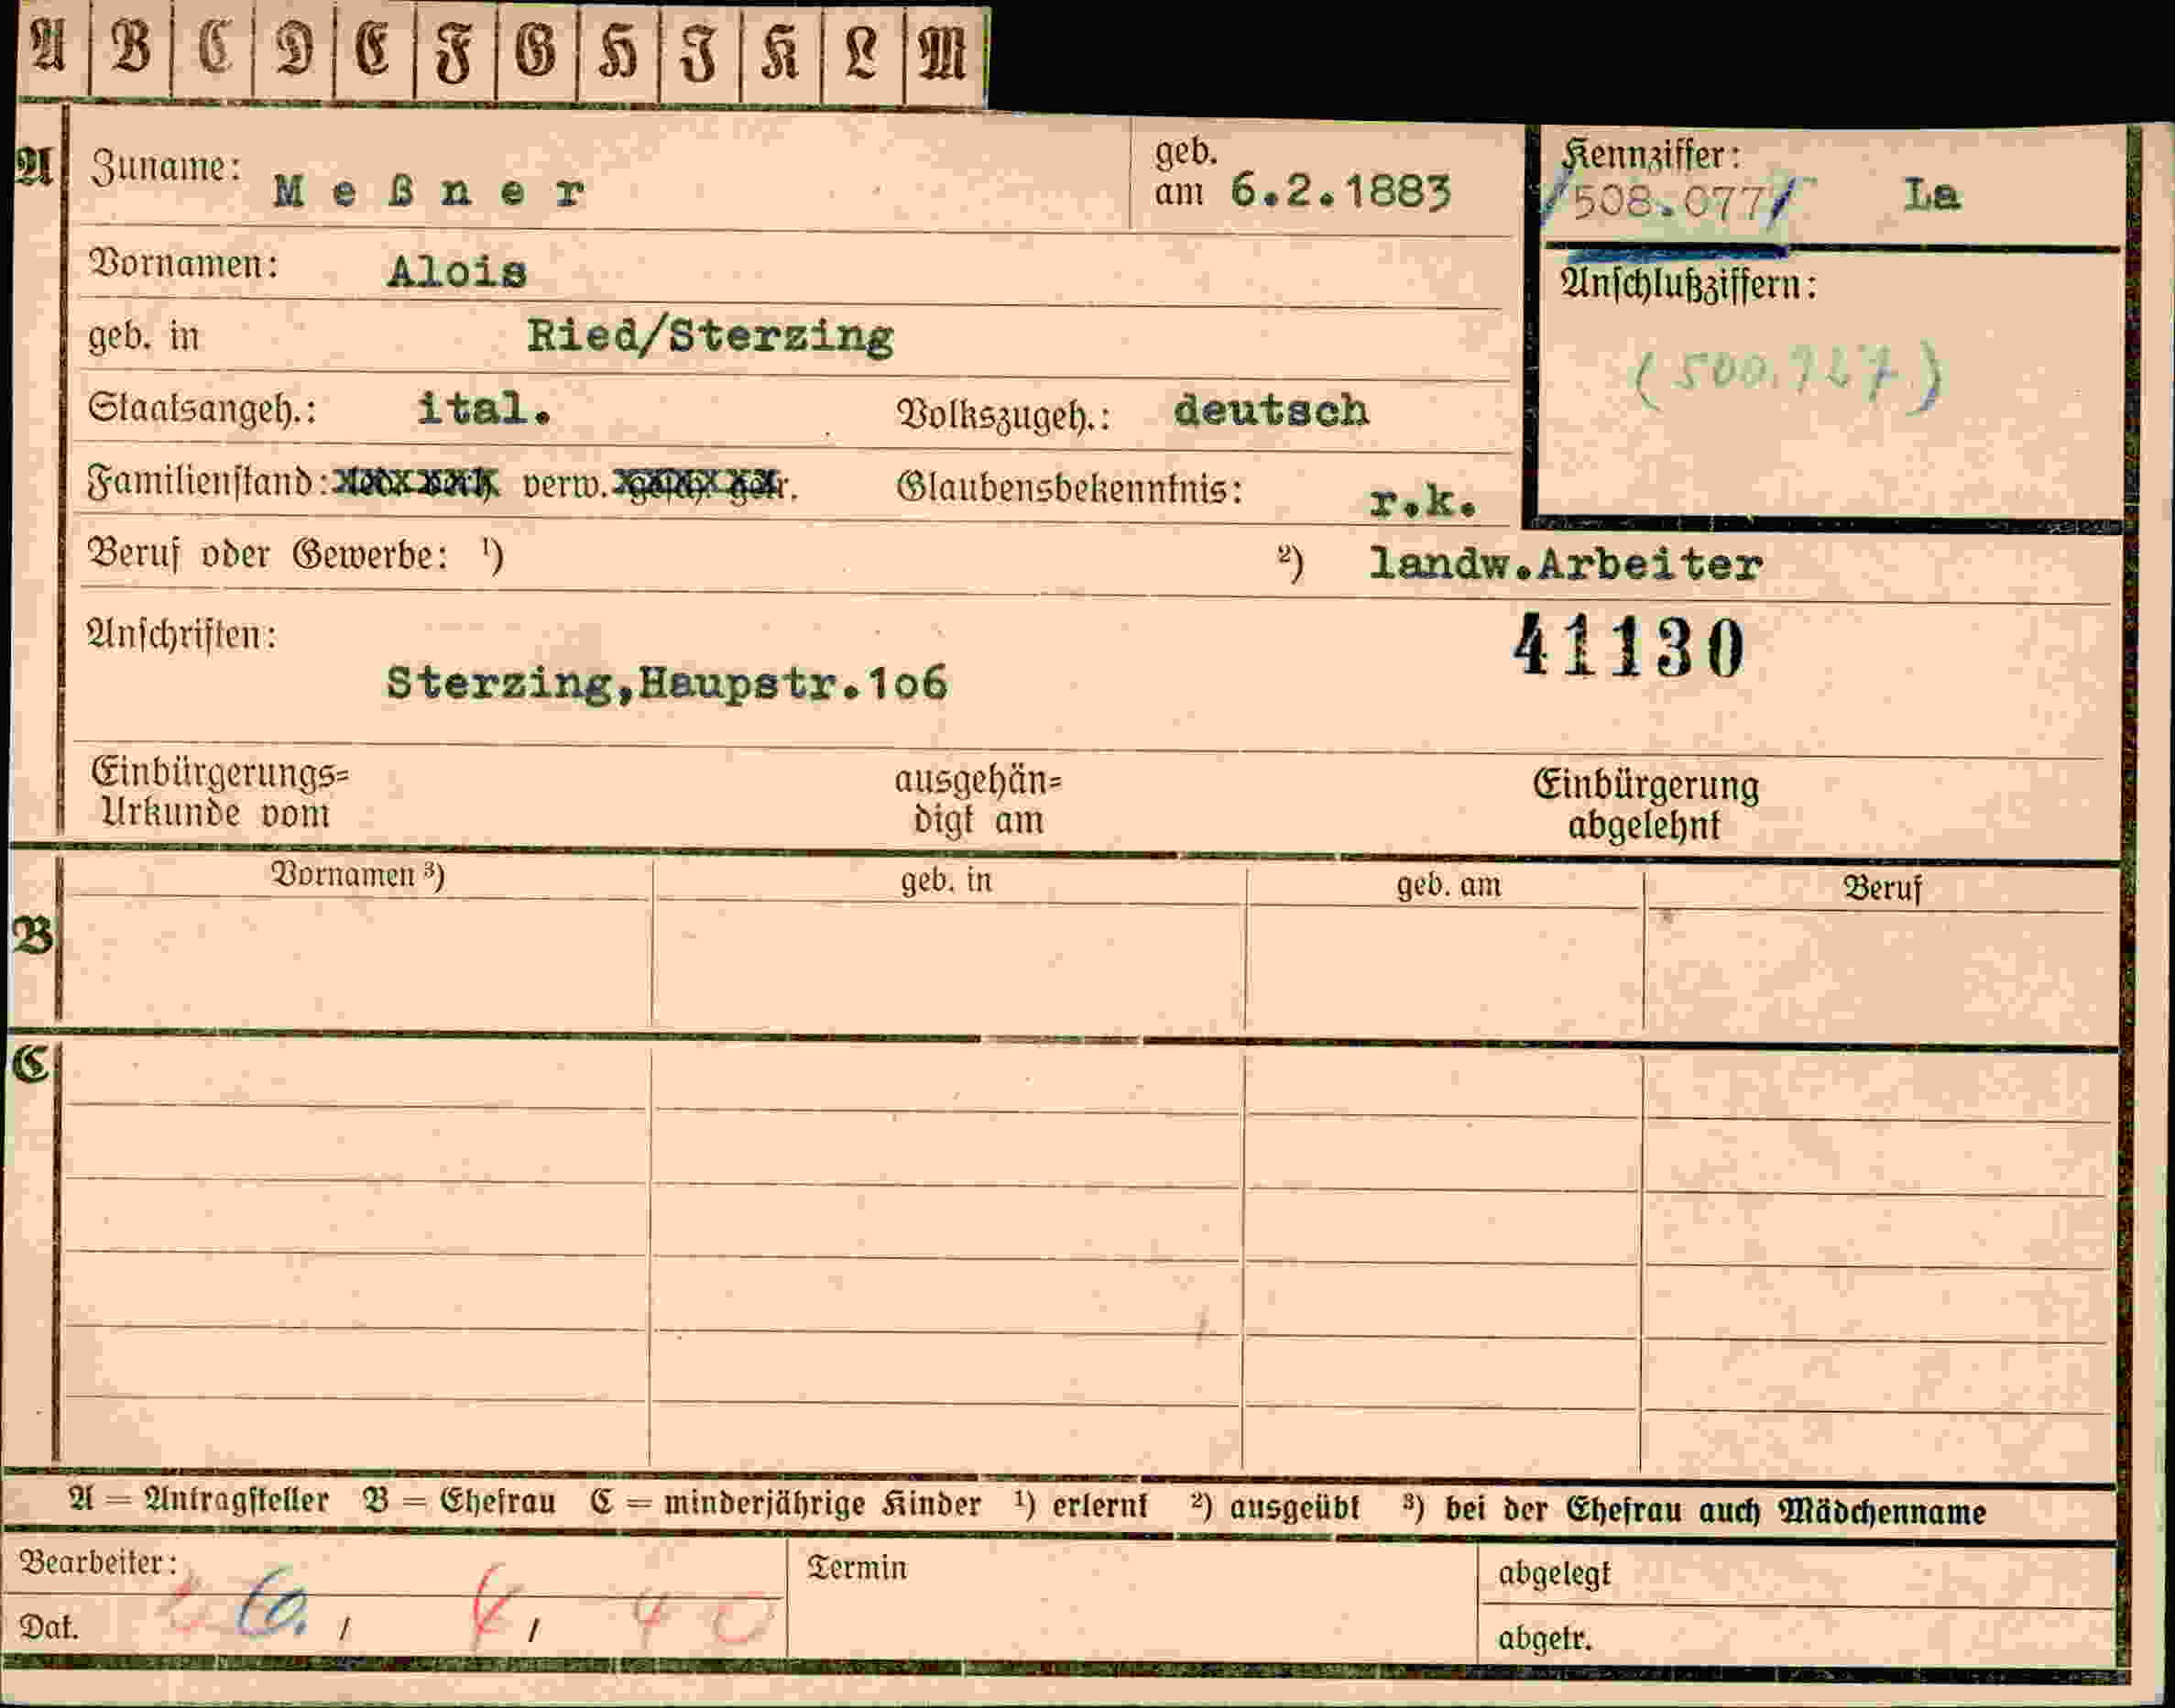 A B C D E F G H I K L M
A Zuname: Meßner geb. am 6.2.1883 Kennziffer: /508.077/ La
Vornamen: Alois Anschlußziffern:
geb. in Ried/Sterzing
Staatsangeh.: ital. Volkszugeh.: deutsch
Familienstand: verw. Glaubensbekenntnis: r.k.
Beruf oder Gewerbe: ¹) ²) landw.Arbeiter
Anschriften: 41130
Sterzing,Haupstr.1o6
Einbürgerungs=
Urkunde vom
ausgehän=
digt am
Einbürgerung
abgelehnt
B Vornamen ³) geb. in geb. am Beruf
C
A = Antragsteller B = Ehefrau C = minderjährige Kinder ¹) erlernt ²) ausgeübt ³) bei der Ehefrau auch Mädchenname
Bearbeiter: Termin abgelegt
Dat. / / 40 abgetr.